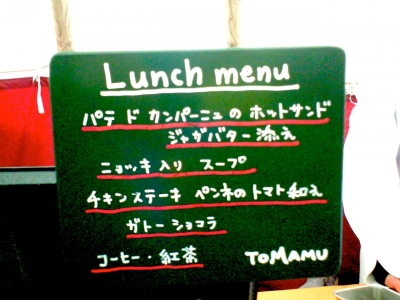 Lunch menu
パテ ド カンパーニュ の ホットサンド
ジャガバター 添え
ニョッキ入り スープ
チキンステーキ ペンネのトマト和え
ガトー ショコラ
コーヒー・紅茶 TOMAMU